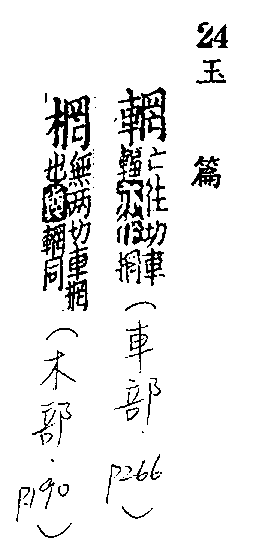 24
玉篇
輞 亡往切車
棢 (車部. P266)
棢 無两切車棢
也與輞同 (木部. P190)